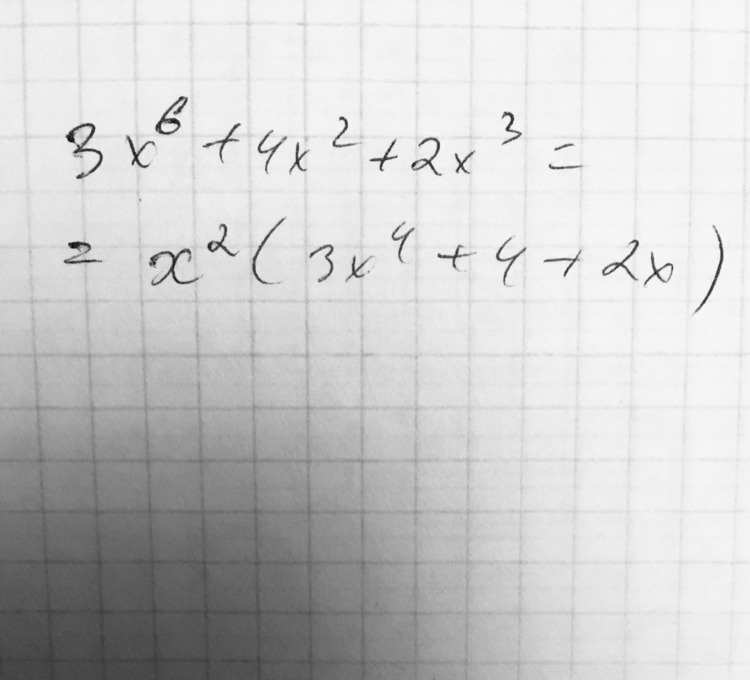 3x⁶ + 4x² + 2x³ =
= x² ( 3x⁴ + 4 + 2x )